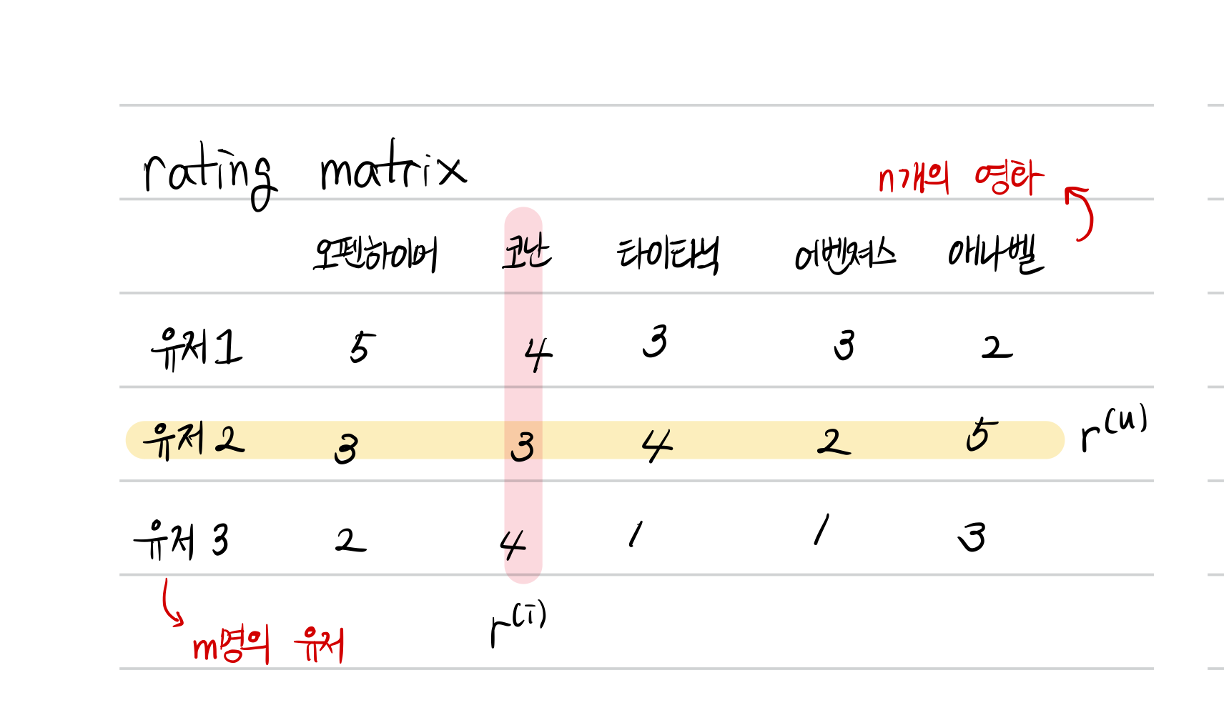 rating matrix
n개의 영화
오펜하이머 코난 타이타닉 어벤져스 애나벨
유저 1 5 4 3 3 2
유저 2 3 3 4 2 5 r(u)
유저 3 2 4 1 1 3
r(i)
m명의 유저